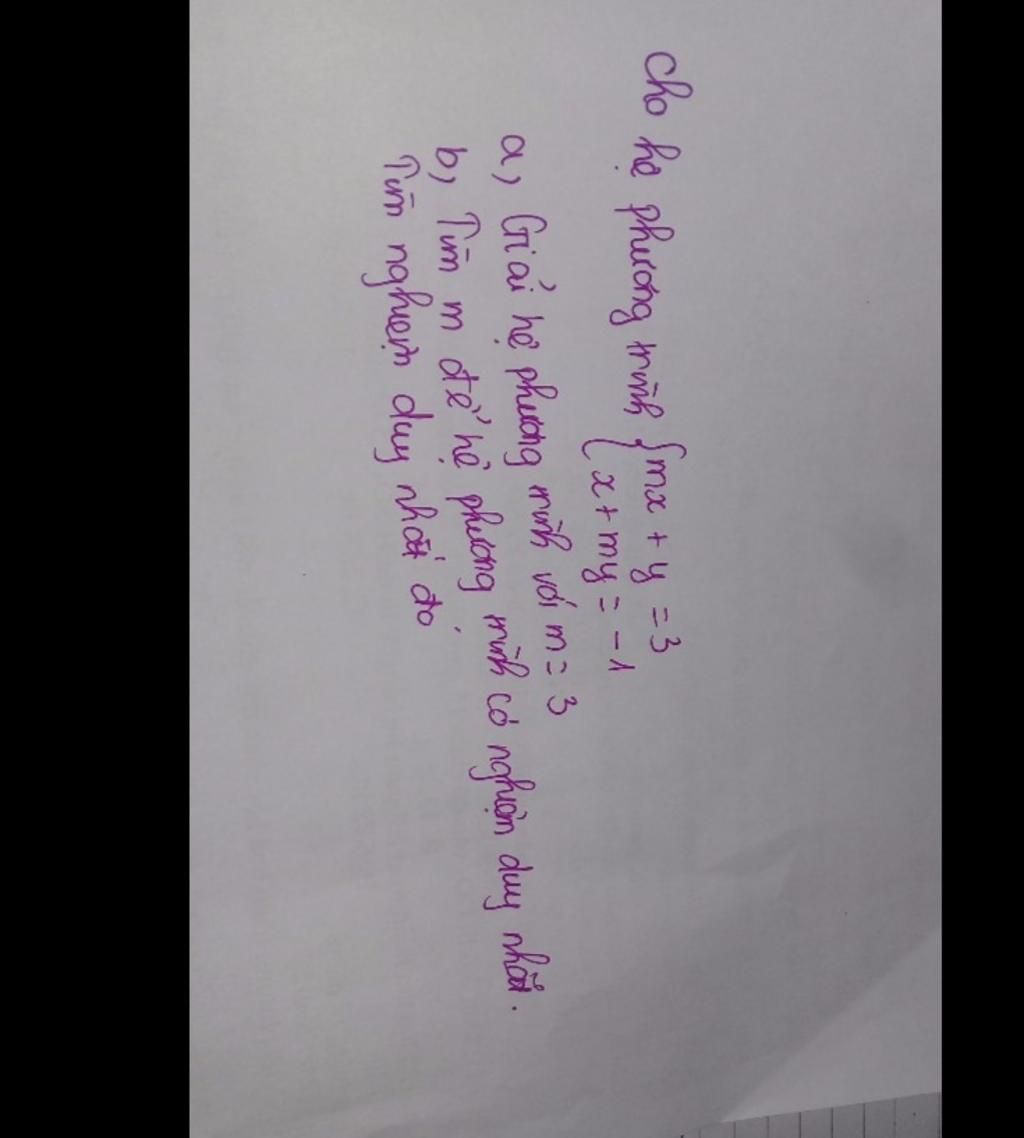 Cho hệ phương trình { mx + y = 3
x + my = -1
a, Giải hệ phương trình với m = 3
b, Tìm m để hệ phương trình có nghiệm duy nhất.
Tìm nghiệm duy nhất đó.